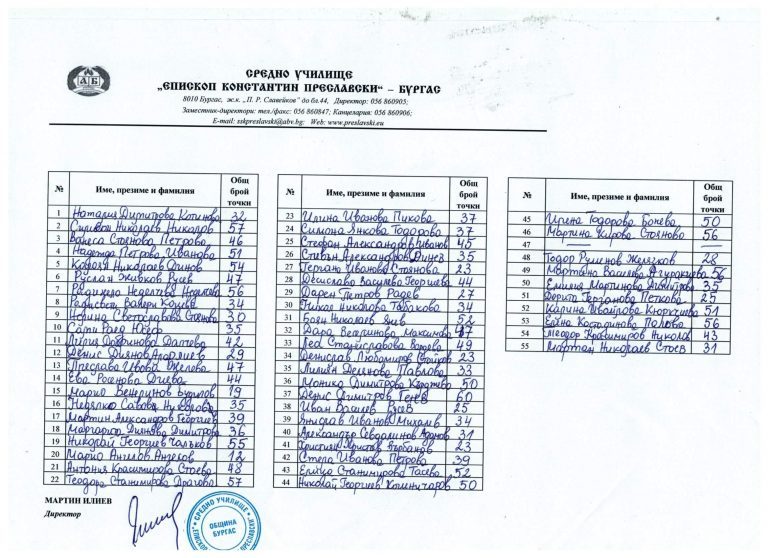 АБ
СРЕДНО УЧИЛИЩЕ
„ЕПИСКОП КОНСТАНТИН ПРЕСЛАВСКИ“ – БУРГАС
8010 Бургас, ж.к. „П. Р. Славейков“ до бл.44, Директор: 056 860903;
Заместник-директори: тел./факс: 056 860847; Канцелария: 056 860906;
E-mail: sskpreslavski@abv.bg; Web: www.preslavski.eu
№ Име, презиме и фамилия Общ брой точки
1 Наталия Димитрова 32
2 Николаев Николов 57
3 Ванеса Стоянова Петрова 46
4 Надежда Петрова Иванова 51
5 Николаев Динов 54
6 Руслан Живков Русев 47
7 Неделчева 56
8 34
9 Светославова Стоянова 30
10 Сами Раед Юсеф 35
11 Лидия Добринова Далтева 42
12 Денис Диянов 29
13 Преслава Ивова Желева 47
14 Ева Росенова Дичева 44
15 Марио Венелинов 19
16 Недялко Савов 35
17 Мартин Александров Георгиев 39
18 Маргарита Диянова Димитрова 36
19 Николай Георгиев Чальков 55
20 Марио Ангелов Ангелов 12
21 Антония Красимирова Стоева 48
22 Теодора Станимирова Драгова 57
№ Име, презиме и фамилия Общ брой точки
23 Илина Иванова Пикова 37
24 Симона Янкова Тодорова 37
25 Стефан Александров Иванов 45
26 Стивън Александров Динев 35
27 Гергана Иванова Стоянова 23
28 Десислава Василева Георгиева 44
29 Дарен Петров Радев 27
30 Николова Табакова 34
31 Боян Николаев 52
32 Дара Веселинова 47
33 Леа Станиславова 49
34 Денислав Любомиров Стойков 23
35 Лилия Деянова Павлова 33
36 Моника Димитрова 50
37 Денис Димитров Генев 60
38 Иван Василев Русев 25
39 Иванов Михалев 34
40 Александър Севдалинов 31
41 Християн Христов Върбанов 23
42 Стела Иванова Петрова 39
43 Елица Станимирова Тасева 52
44 Николай Георгиев 50
№ Име, презиме и фамилия Общ брой точки
45 Ирина Тодорова Бонева 50
46 Мартина Кирова Стоянова 56
47 — —
48 Тодор Руменов Желязков 28
49 Мартина Василева 56
50 Емилия Мартинова Димитрова 35
51 Петкова 25
52 Карина Ивайлова Кюркчиева 51
53 Костадинова Попова 56
54 Теодор Красимиров Николов 43
55 Мартин Николаев Стоев 31
МАРТИН ИЛИЕВ
Директор
СРЕДНО УЧИЛИЩЕ
ОБЩИНА
БУРГАС